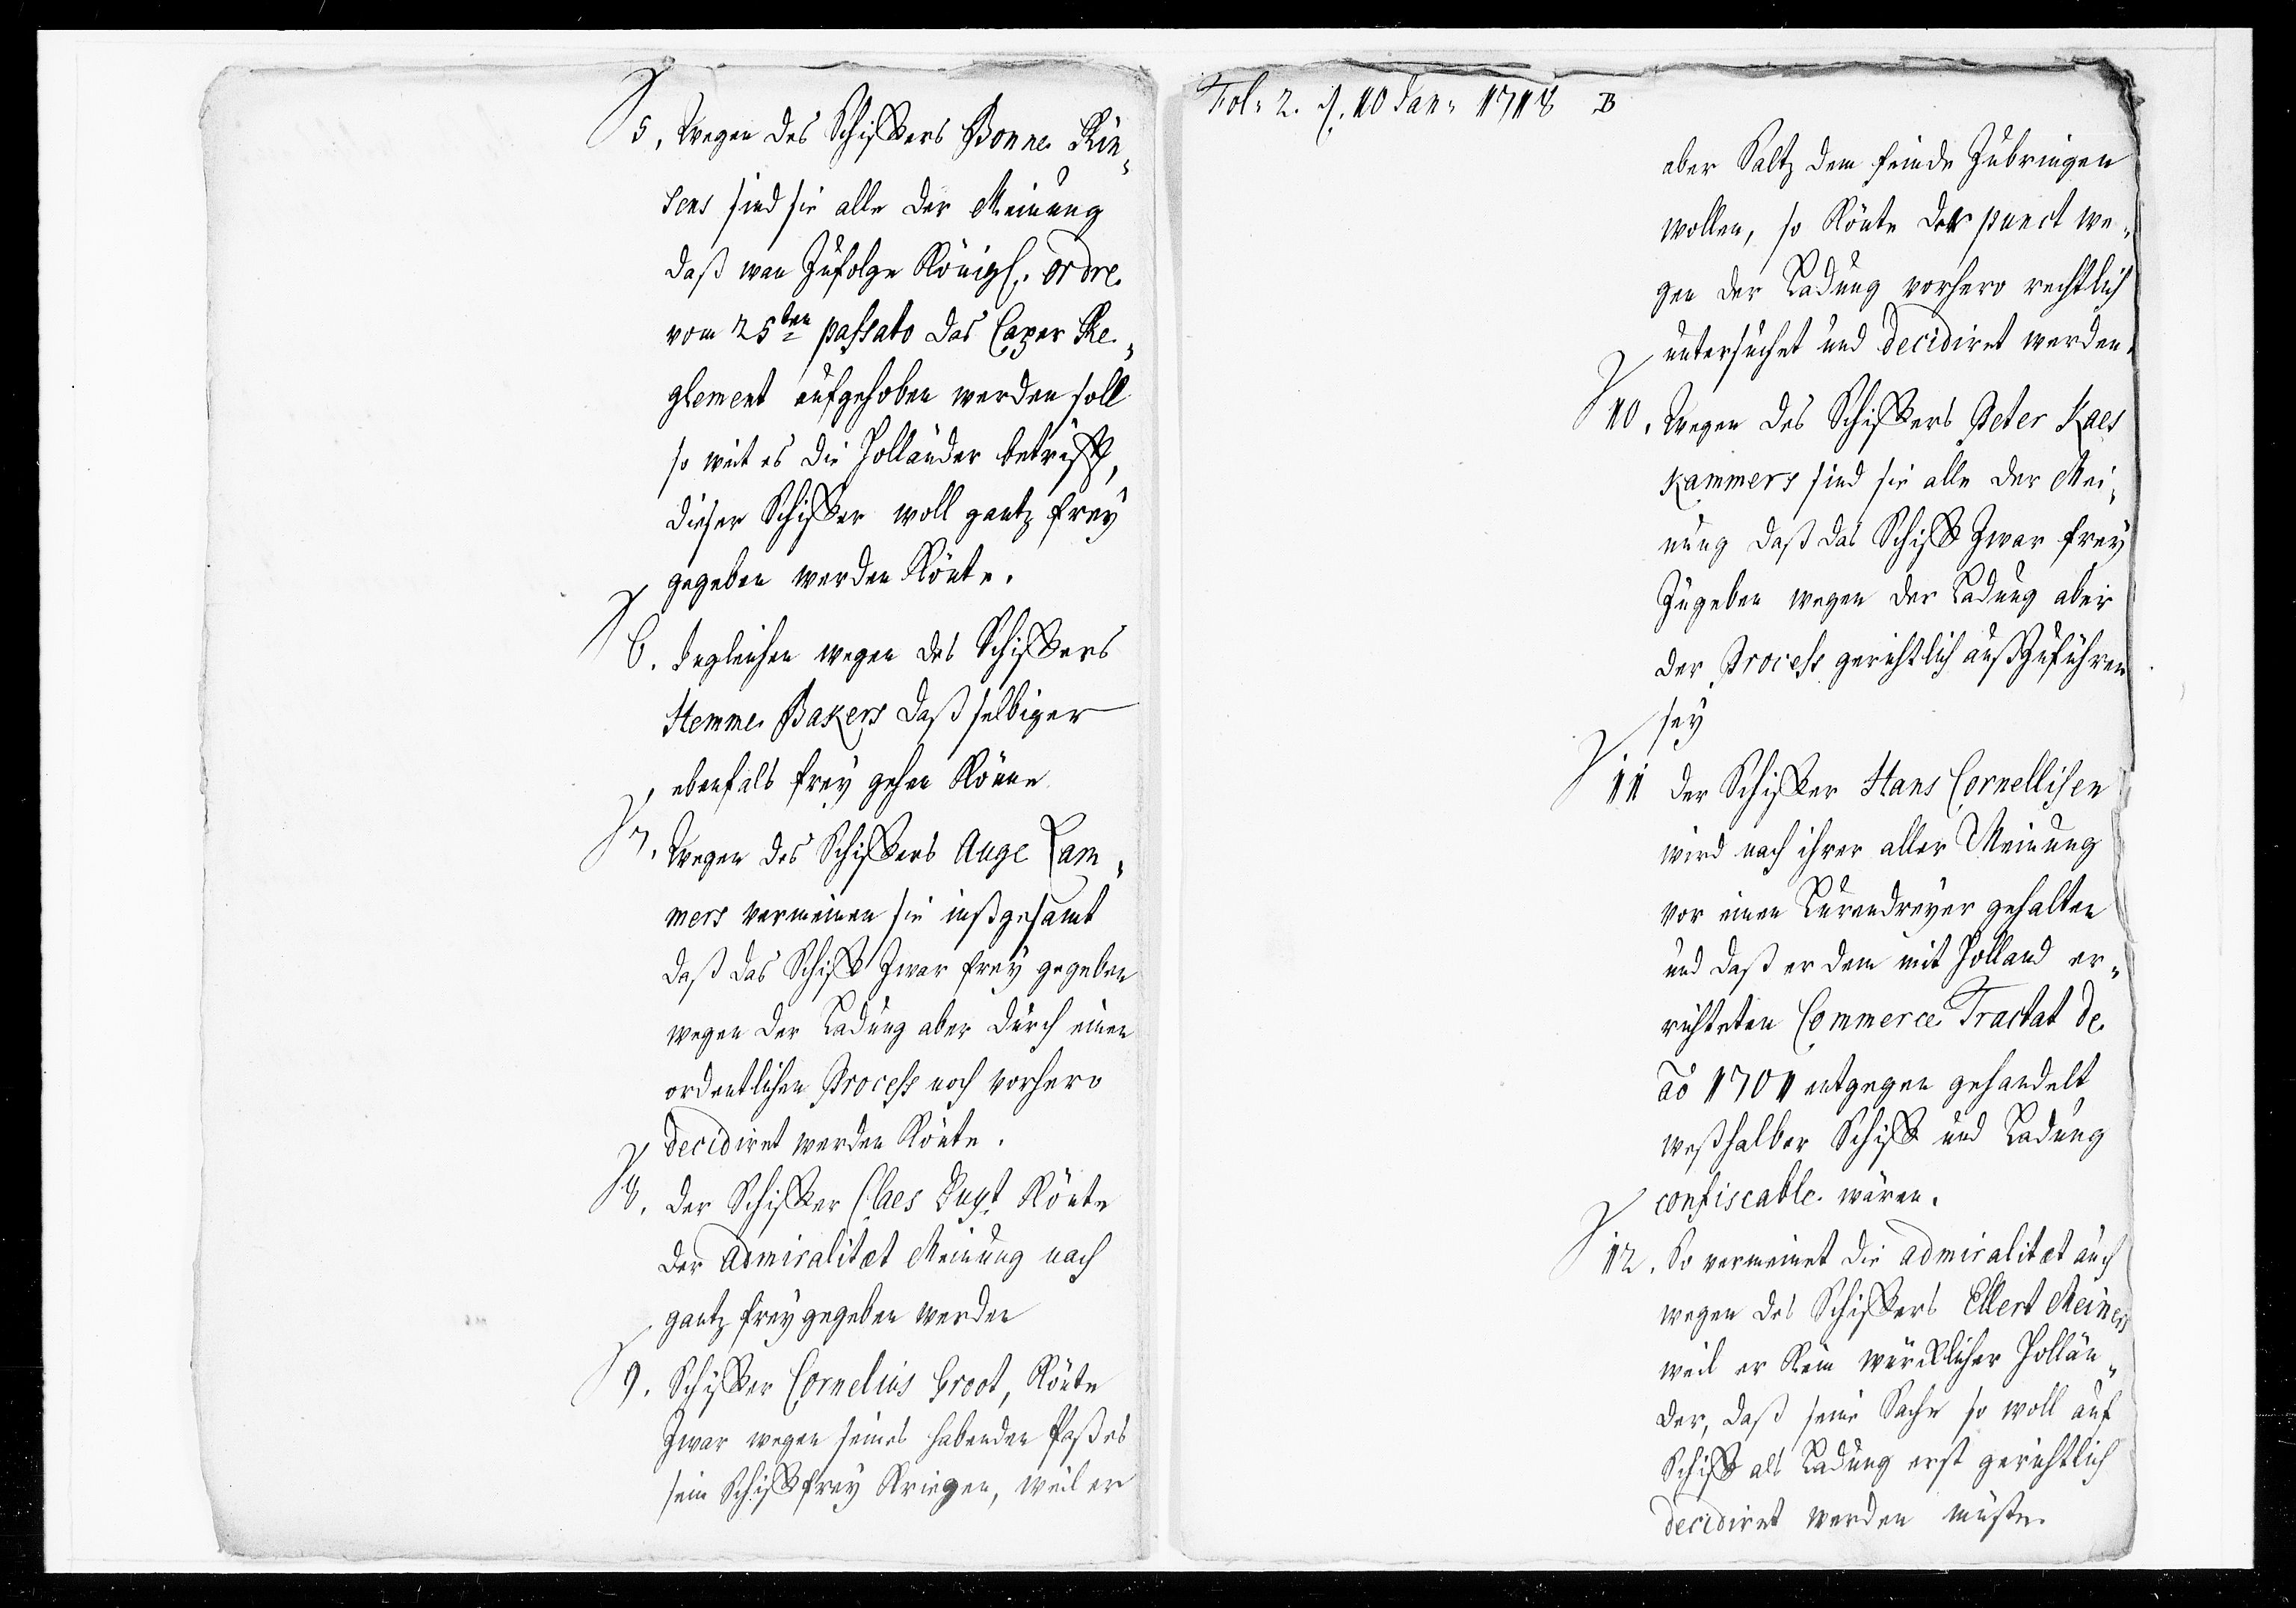 5, Wegen des Schiffers Bonne Rin„
sens sind sie alle der Meinung
daß wan Zufolge Königl: ordre
vom 25ten passato das Caper Re„
glement aufgehoben werden soll
so weit es die Holländer betrifft,
dieser Schiffer woll gantz frey
gegeben werden könte.
6. Ingleichen wegen des Schiffers
Hemme Bakers daß selbiger
ebenfals frey gehen könne
7. Wegen des Schiffers Auge Lam„
mers vermeinen sie inßgesamt
daß das Schiff Zwar frey gegeben
wegen der Ladung aber durch einen
ordentlichen Process noch vorhero
decidiret werden könte.
8. Der Schiffer Claes Duyt könte
der Admiralitæt Meinung nach
gantz frey gegeben werden
9. Schiffer Cornelius Groot, könte
Zwar wegen seines habenden Paßes
sein Schiff frey kriegen, weil er
Fol: 2. d. 10 Jan: 1718 B
aber Saltz dem feinde Zubringen
wollen, so könte der punct we„
gen der Ladung vorhero rechtlich
untersuchet und decidiret werden.
10. Wegen des Schiffers Peter Kaes
Kammers sind sie alle der Mei„
nung daß das Schiff Zwar frey
Zugeben wegen der Ladung aber
der Process gerichtlich außzuführen
sey
11 Der Schiffer Hans Cornellisen
wird nach ihrer aller Meinung
vor einen Lurendreyer gehalten
und daß er dem mit Holland er„
richteten Commerce Tractat de
ao 1701 entgegen gehandelt
weßhalber Schiff und Ladung
confiscable wären.
12. So vermeinet die Admiralitæt auch
wegen des Schiffers Ellert Meiners
weil er kein würcklicher Hollän„
der, daß seine Sache so woll auf
Schiff als Ladung erst gerichtlich
decidiret werden müste.